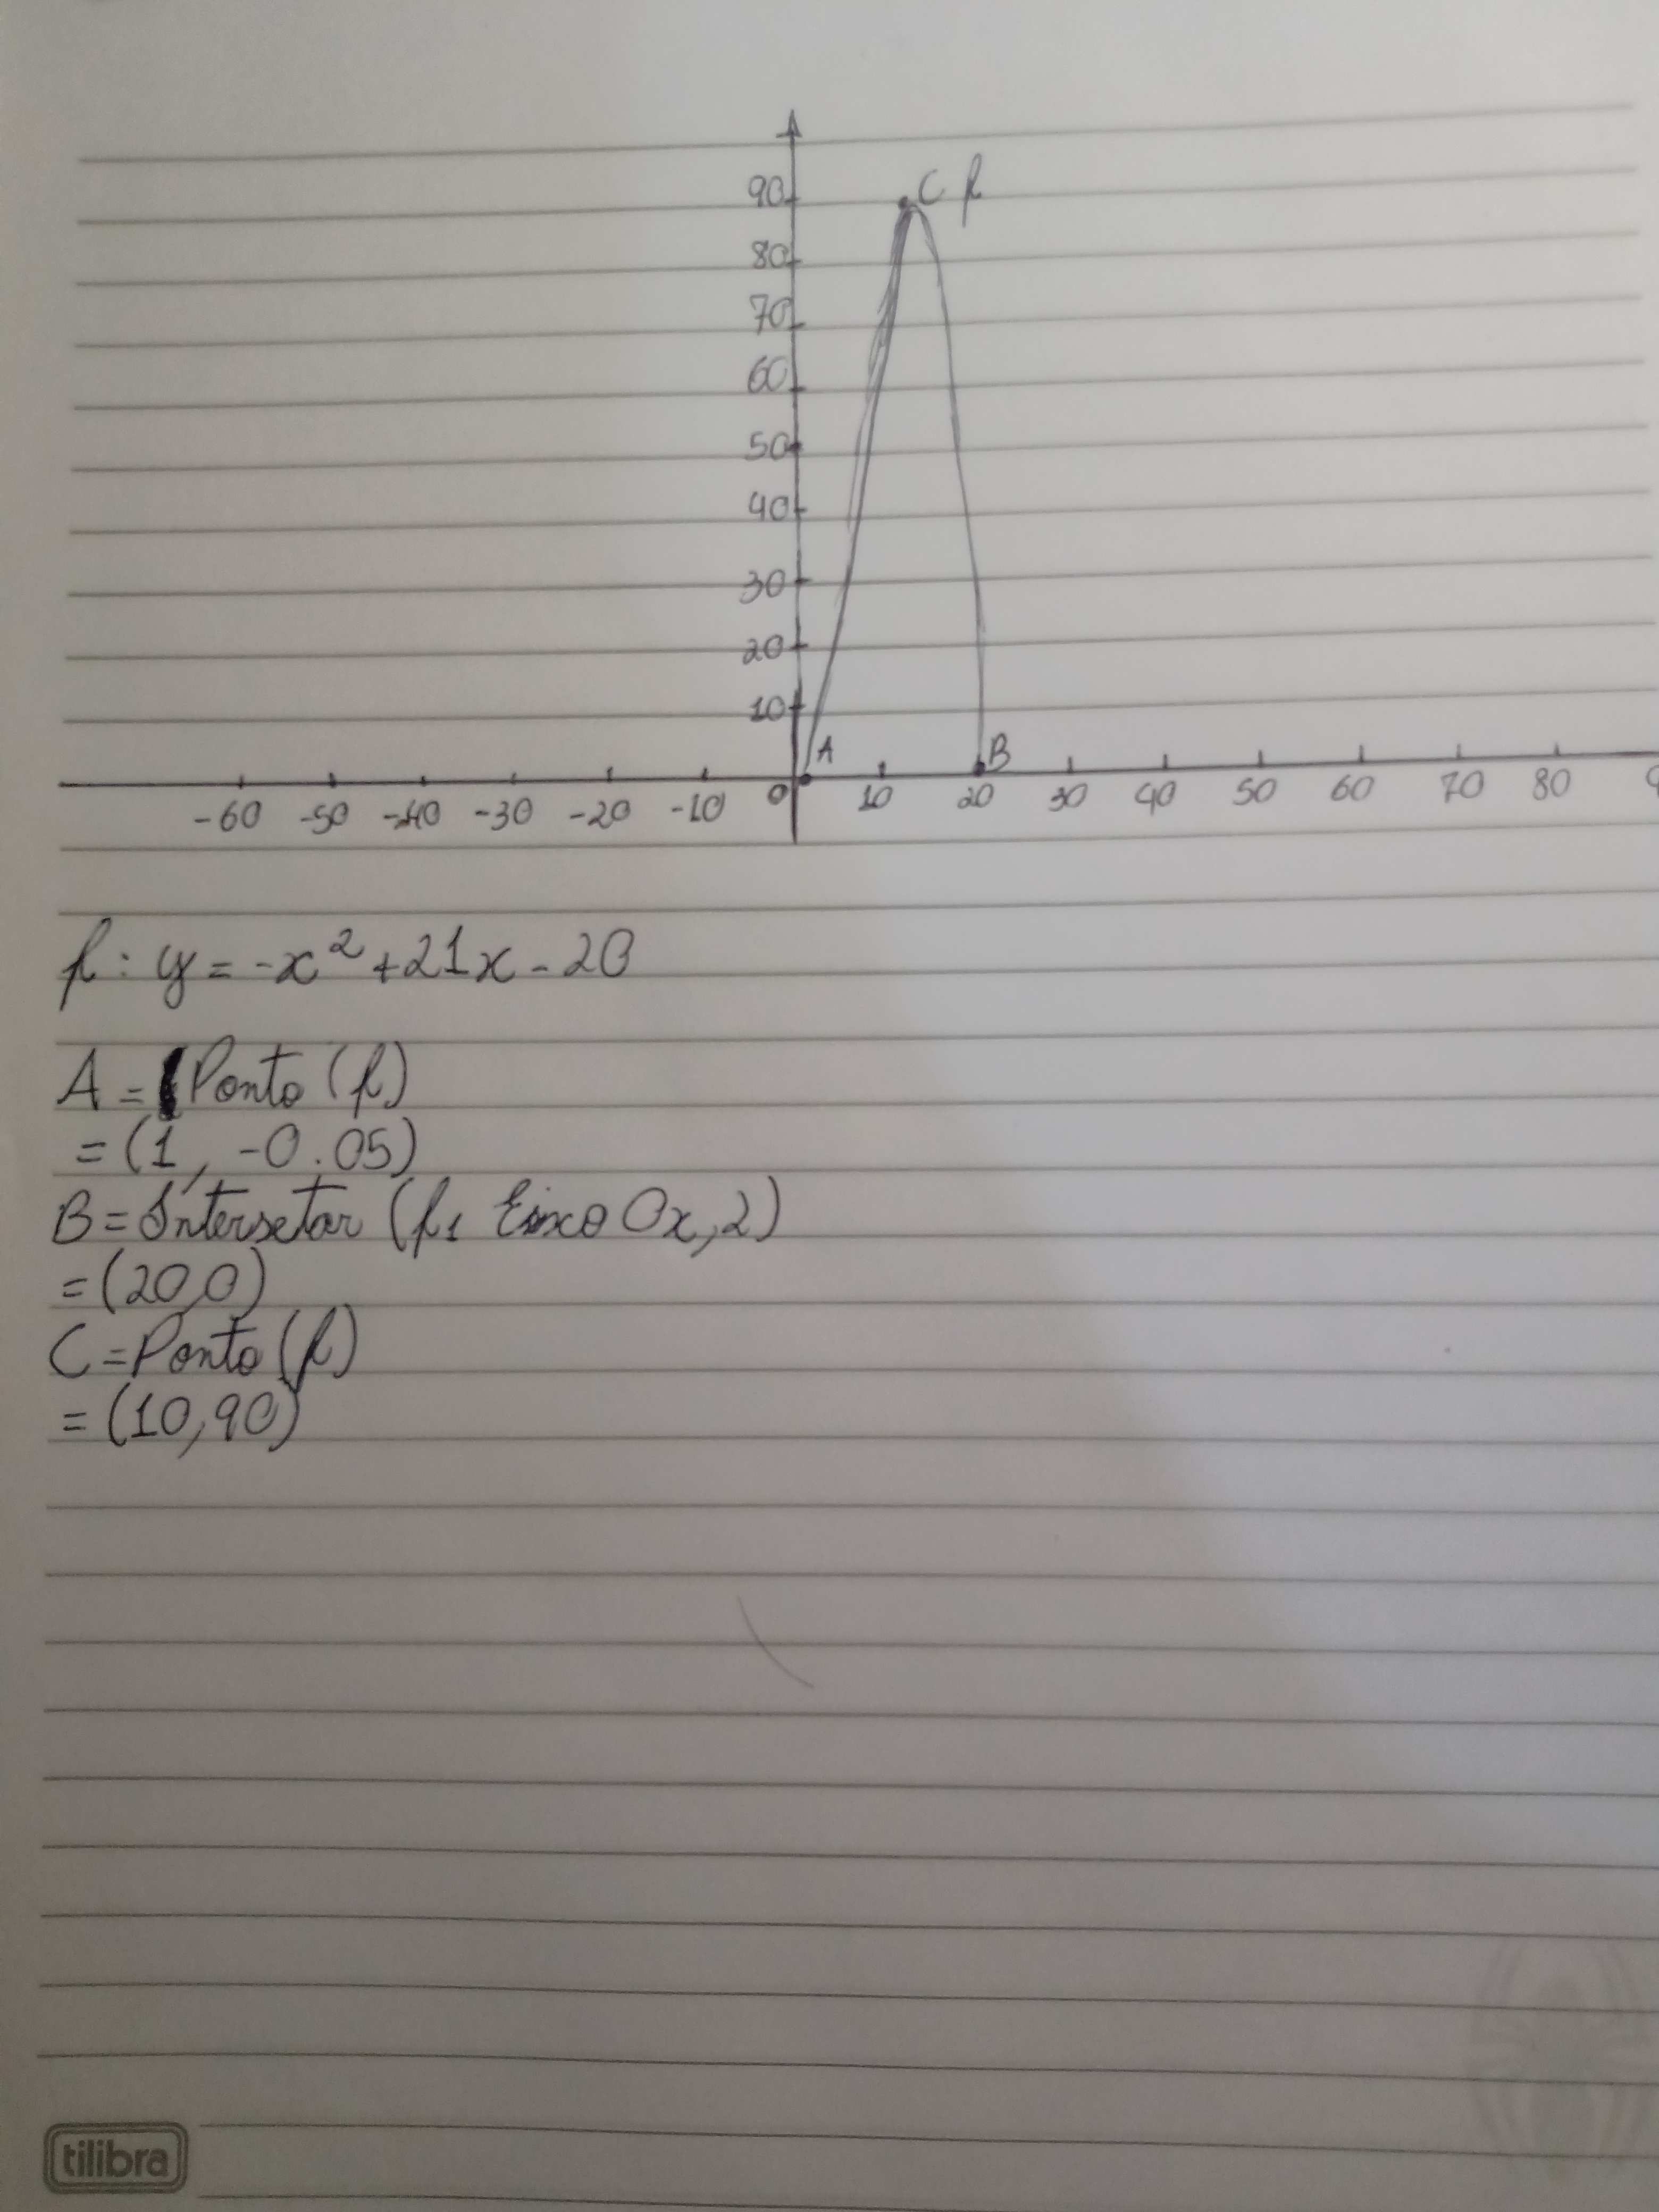 90 C f
80
70
60
50
40
30
20
10
A B
-60 -50 -40 -30 -20 -10 0 10 20 30 40 50 60 70 80 9
f: y = -x² + 21x - 20
A = Ponto (f)
= (1, -0.05)
B = Intersetar (f, Eixo Ox, 2)
= (20,0)
C = Ponto (f)
= (10,90)
tilibra